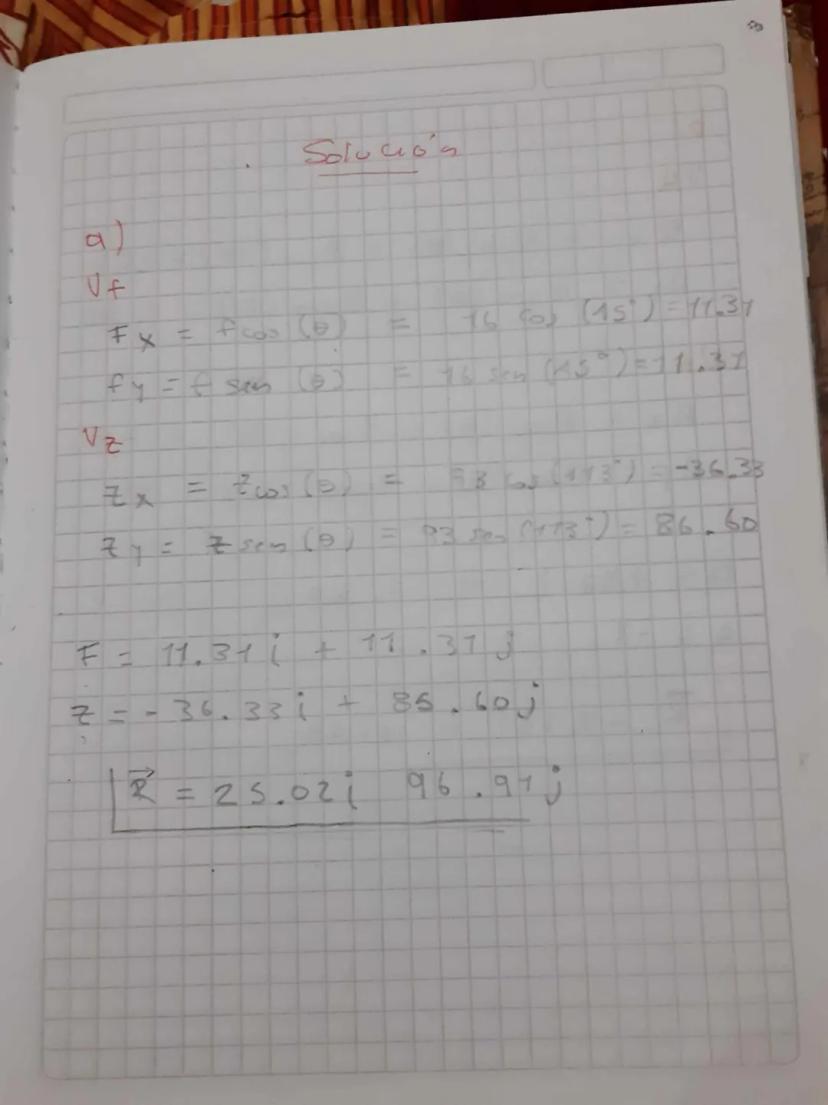 Solución
a)
Vf
Fx = f cos (θ) = 16 cos (45°) = 11.31
fy = f sen (θ) = 16 sen (45°) = 11.31
Vz
zx = z cos (θ) = 93 cos (113°) = -36.33
zy = z sen (θ) = 93 sen (113°) = 86.60
F = 11.31 i + 11.31 j
z = - 36.33 i + 85.60 j
R⃗ = 25.02 i 96.91 j